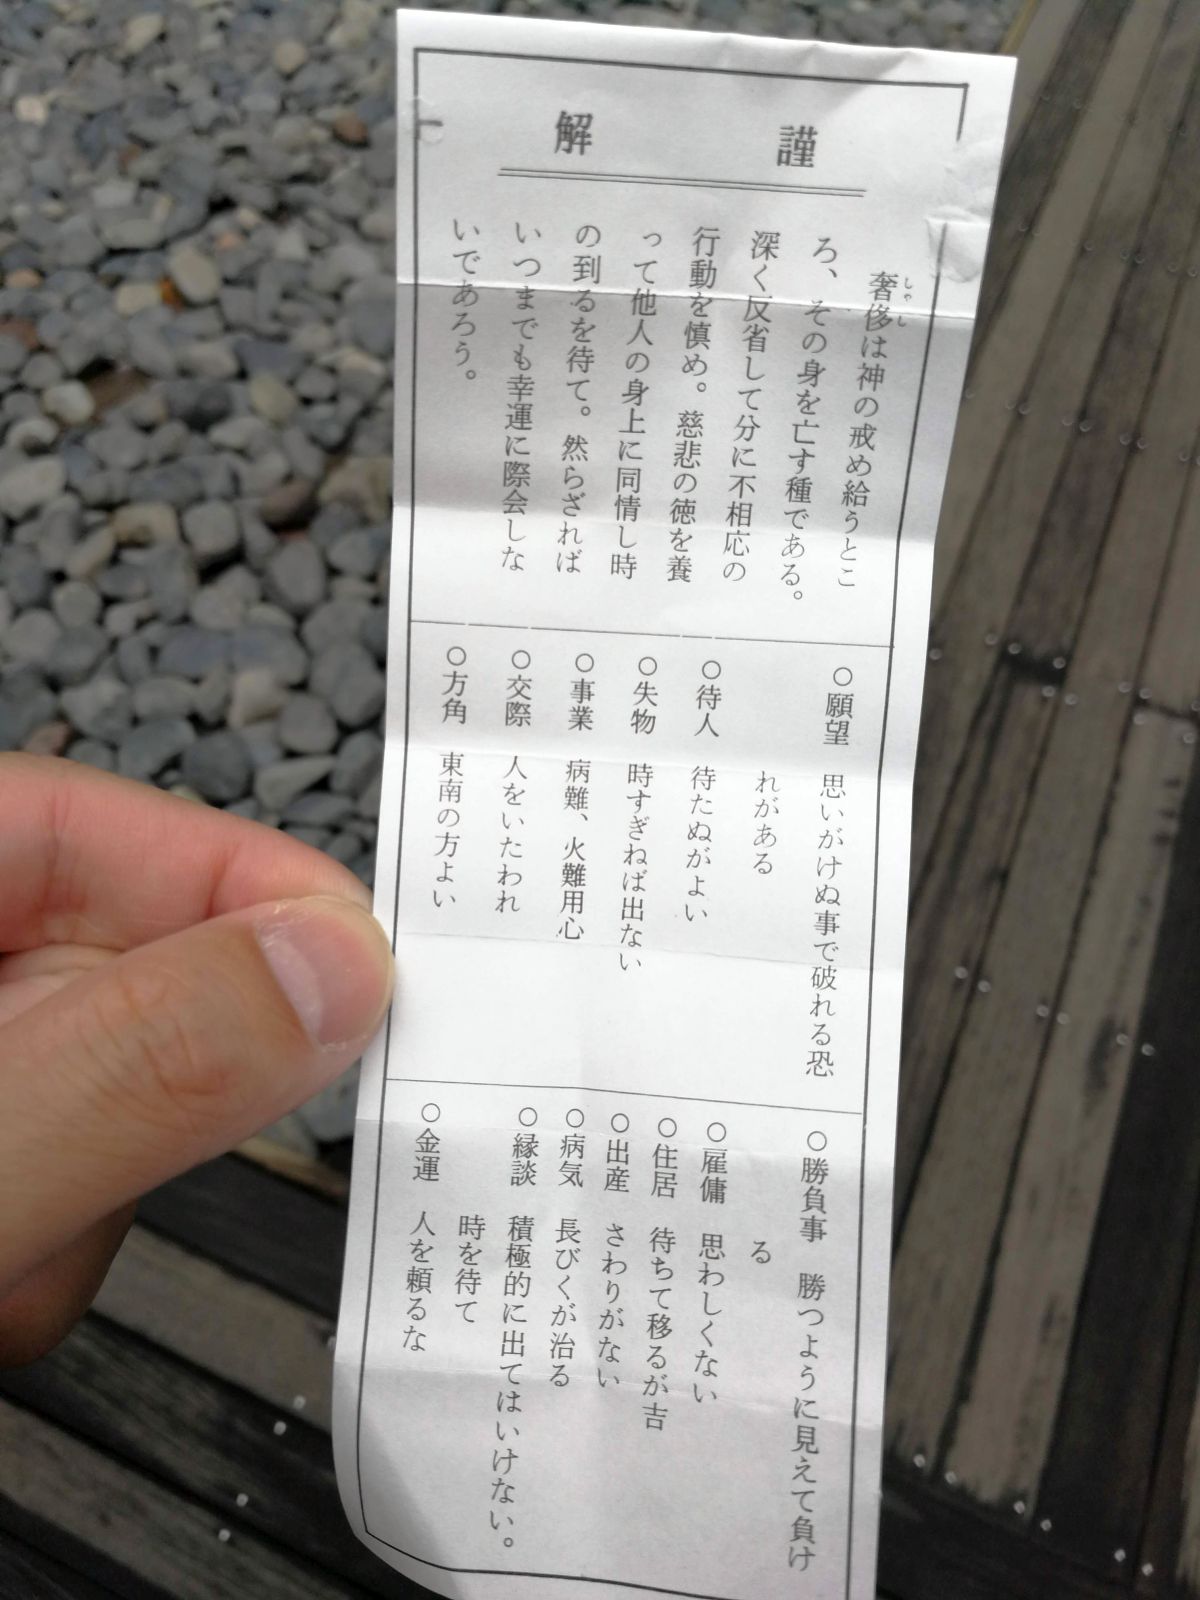 謹解
奢侈は神の戒め給うとこ
しゃし
ろ、その身を亡す種である。
深く反省して分に不相応の
行動を慎め。慈悲の徳を養
って他人の身上に同情し時
の到るを待て。然らざれば
いつまでも幸運に際会しな
いであろう。
○願望 思いがけぬ事で破れる恐
れがある
○待人 待たぬがよい
○失物 時すぎねば出ない
○事業 病難、火難用心
○交際 人をいたわれ
○方角 東南の方よい
○勝負事 勝つように見えて負け
る
○雇傭 思わしくない
○住居 待ちて移るが吉
○出産 さわりがない
○病気 長びくが治る
○縁談 積極的に出てはいけない。
時を待て
○金運 人を頼るな